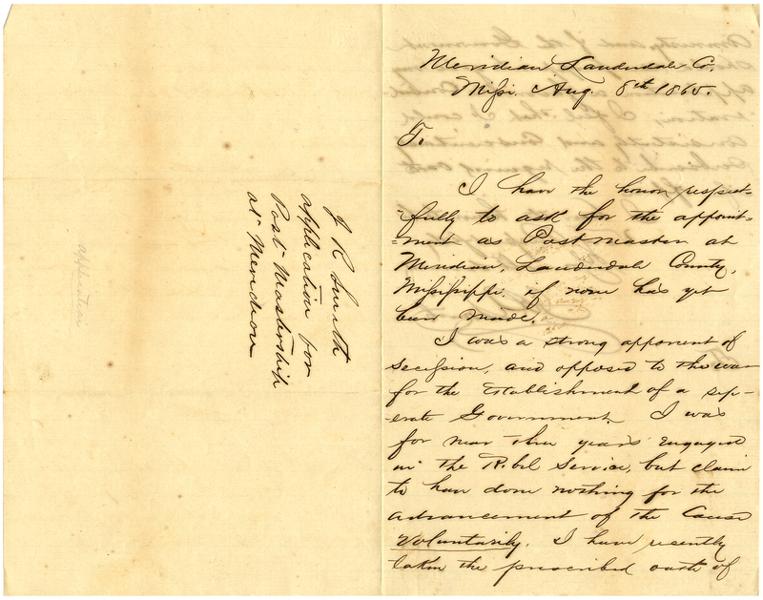 J R Smith
application for
Post Mastership
at Meridian
application
Meridian Lauderdale Co.
Missi. Aug. 8th 1865.
To.
I have the honor respect-
-fully to ask for the appoint-
-ment as Postmaster at
Meridian, Lauderdale County,
Mississippi if none has yet
been made.
I was a strong opponent of
secession, and opposed to the war
for the establishment of a sep-
-erate Government. I was
for near three years engaged
in the Rebel Service, but claim
to have done nothing for the
advancement of the Cause
Voluntarily. I have recently
taken the prescribed oath of